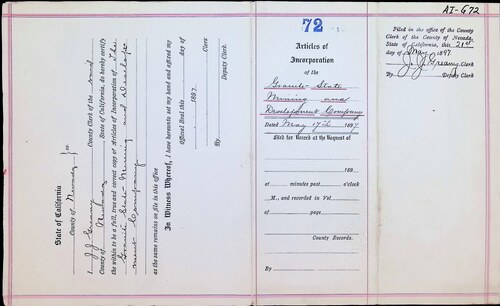 State of California
County of Nevada } ss
I J. J. Greany County Clerk of the said
County of Nevada, State of California, do hereby certify
the within to be a full, true and correct copy of Articles of Incorporation of The
Granite State Mining and Develop
ment Company
as the same remains on file in this office
In Witness Whereof, I have hereunto set my hand and affixed my
Official Seal this day of
1897
Clerk
By
Deputy Clerk.
72
Articles of
Incorporation
of the
Granite State
Mining and
Development Company
Dated May 17th 1897
Filed for Record at the Request of
189
at minutes past o'clock
M., and recorded in Vol
of page
County Records.
By
AI-672
Filed in the office of the County
Clerk of the County of Nevada,
State of California, this 21st
day of May 1897
J. J. Greany Clerk
By Deputy Clerk